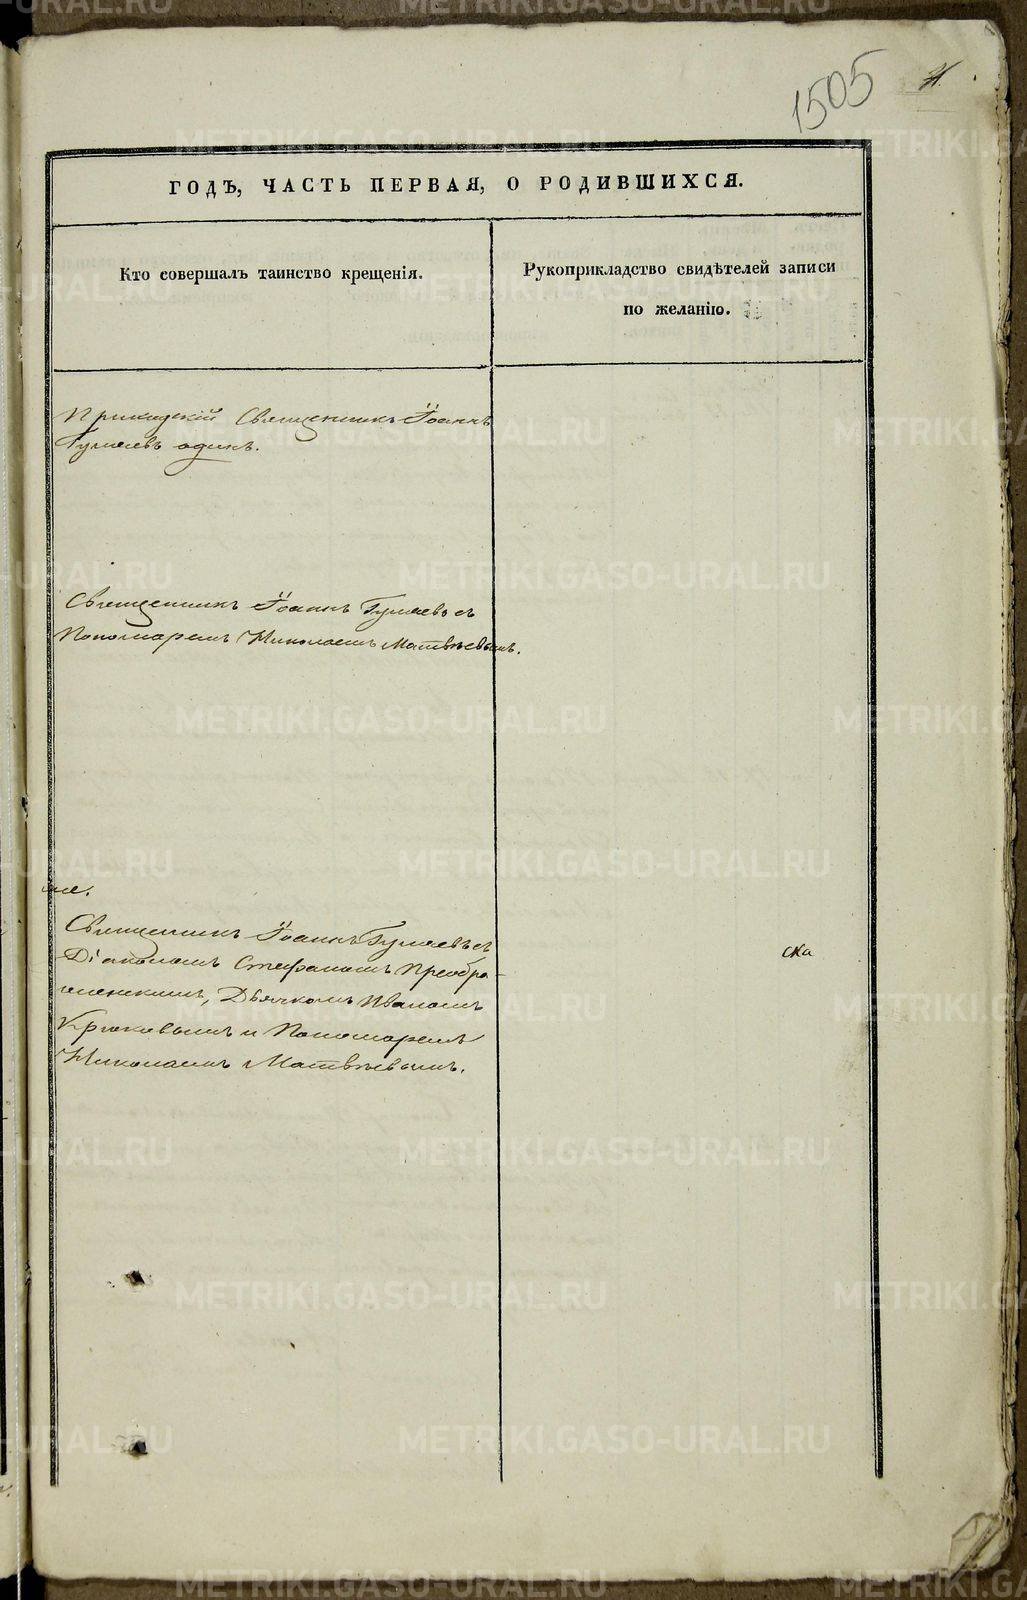 1505
ГОДЪ, ЧАСТЬ ПЕРВАЯ, О РОДИВШИХСЯ.
Кто совершалъ таинство крещенія.
Рукоприкладство свидѣтелей записи
по желанію.
Приходскій Священникъ Іоаннъ
Гуляевъ одинъ.
Священникъ Іоаннъ Гуляевъ съ
Пономаремъ Николаемъ Матвѣевымъ.
Священникъ Іоаннъ Гуляевъ съ
Діакономъ Стефаномъ Преобра-
женскимъ, Дьячкомъ Иваномъ
Крюковымъ и Пономаремъ
Николаемъ Матвѣевымъ.
ска
METRIKI.GASO-URAL.RU